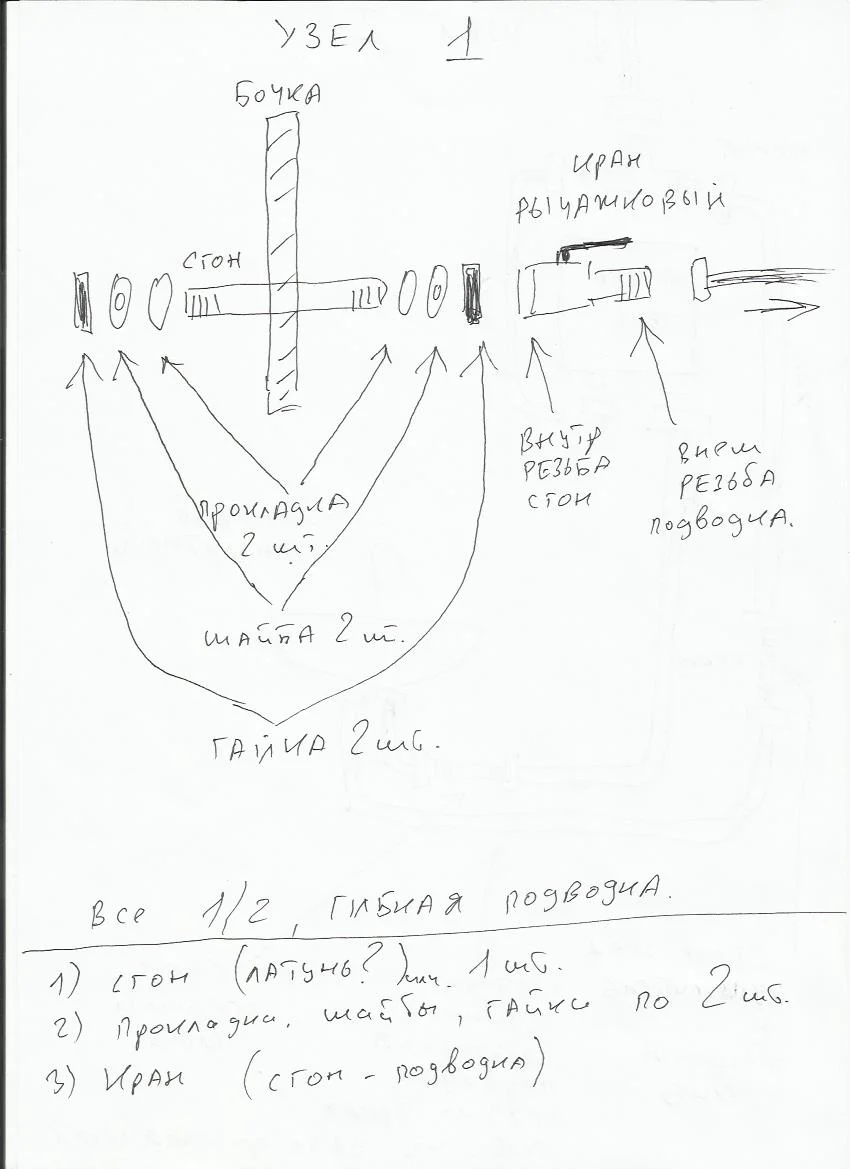 УЗЕЛ 1
БОЧКА
КРАН
РЫЧАЖКОВЫЙ
СГОН
ВНУТР
РЕЗЬБА
СГОН
ВНЕШ
РЕЗЬБА
подводка.
ПРОКЛАДКА
2 шт.
ШАЙБА 2 шт.
ГАЙКА 2 шт.
Все 1/2, ГИБКАЯ подводка.
1) СГОН (ЛАТУНЬ?) 1 шт.
2) Прокладки, шайбы, гайки по 2 шт.
3) Кран (сгон - подводка)